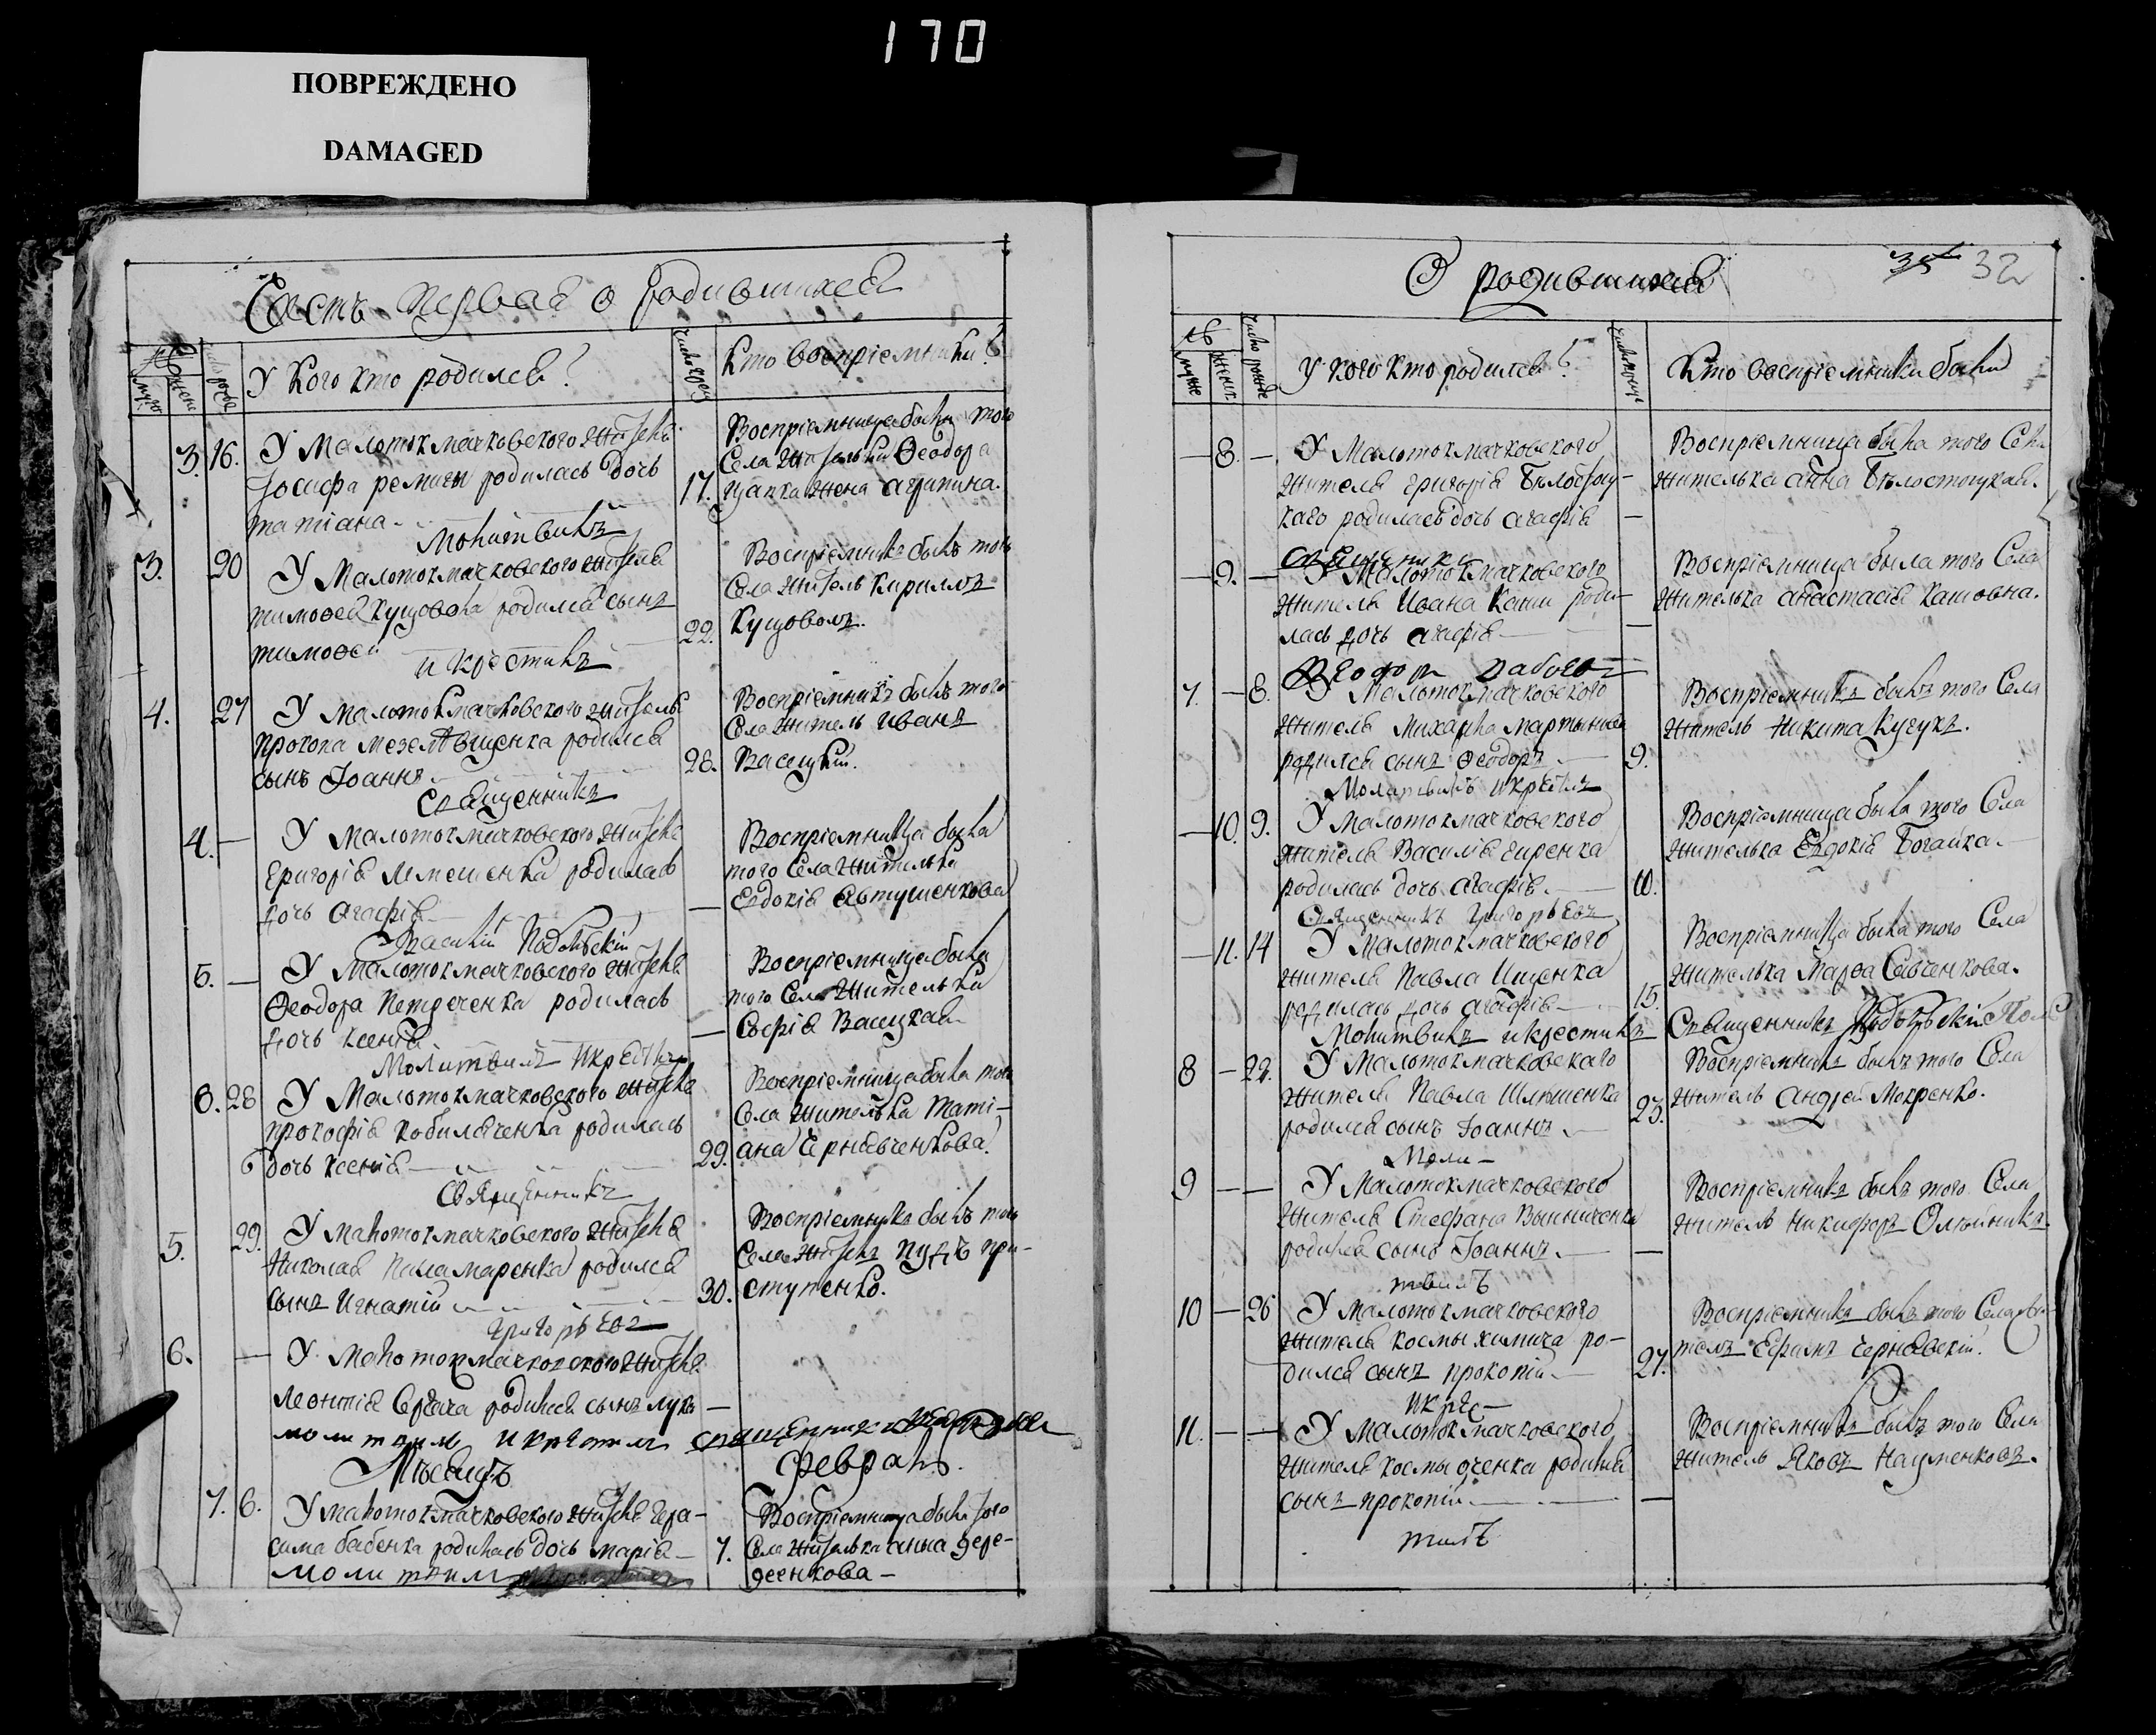 170
ПОВРЕЖДЕНО
DAMAGED
Часть Первая о родившихся
№
муж
жен
число рожд
У Кого кто родился?
число крещ
Кто восприемники?
3. 16. У Малотокмачковского жителя
Іосифа родилась дочь
татіана
Молитвилъ
17.
Восприемница была того
Села жителя Ѳеодора
Цапка жена агрипина.
3. 20 У Малотокмачковского жителя
тимоѳея Куцовола родился сынъ
тимоѳей
и крестилъ
22.
Восприемникъ былъ того
Села житель Кириллъ
Куцоволъ.
4. 27 У Малотокмачковского жителя
прокопа родился
сынъ Іоаннъ
Священникъ
28.
Восприемникъ былъ того
Села житель Иванъ
Васецкій.
4. — У Малотокмачковского жителя
Григорія Лемешенка родилась
дочь агафія
Василій Подольскій
—
Восприемница была
того Села жителька
Евдокія Автушенкова
5. — У Малотокмачковского жителя
Ѳеодора Петреченка родилась
дочь ксенія
Молитвилъ и крестилъ
—
Восприемница была
того Села жителька
Софія Васецкая
6. 28 У Малотокмачковского жителя
прокофія кобиляченка родилась
дочь ксенія
Священникъ
29.
Восприемница была того
Села жителька Тати-
ана Чернявченкова.
5. 29. У Малотокмачковского жителя
Николая Паламаренка родился
сынъ Игнатій
Григорьевъ
30.
Восприемникъ былъ того
Села житель при-
ступенко.
6. — У Малотокмачковского жителя
Леонтія родился сынъ лука —
молитвилъ и крестилъ священникъ
Мѣсяцъ
февраль.
7. 6. У малотокмачковского жителя Гера-
сима бабенка родилась дочь марія —
молитвилъ
7.
Восприемница была того
Села жителька анна дере-
—
О родившихся
35 32
№
муж
жен
число рожд
У кого кто родился?
Кто восприемники были
— 8. — У Малотокмачковского
жителя григорія Бѣлостоц-
каго родилась дочь агафія
Священникъ
—
Восприемница была того Села
жителька анна Бѣлостоцкая.
— 9. — У Малотокмачковского
жителя Ивана Каши роди-
лась дочь агафія
—
Восприемница была того Села
жителька анастасія Кашовна.
7. — 8. У Малотокмачковского
жителя Михаила
родился сынъ Ѳеодоръ
Молитвилъ и крестилъ
9.
Восприемникъ былъ того Села
житель Никита Кучукъ.
— 10. 9. У Малотокмачковского
жителя Василія гиренка
родилась дочь агафія.
Священникъ Григорьевъ
10.
Восприемница была того Села
жителька Евдокія Богайка.
— 11. 14 У Малотокмачковского
жителя Павла Ищенка
родилась дочь агафія
Молитвилъ и крестилъ
15.
Восприемница была того Села
жителька Марѳа Савченкова.
Священникъ Подольскій
8 — 22. У Малотокмачковскаго
жителя Павла
родился сынъ Іоаннъ.
Моли —
23.
Восприемникъ былъ того Села
житель Андрей Мокренко.
9 — — У Малотокмачковского
жителя Стефана Винниченка
родился сынъ Іоаннъ.
твилъ
—
Восприемникъ былъ того Села
житель Никифоръ Олѣйникъ.
10 — 26 У Малотокмачковского
жителя космы химича ро-
дился сынъ прокопій
и кре —
27.
Восприемникъ былъ того Села жи-
тель Ефимъ Чернявскій.
11. — — У Малотокмачковского
жителя космы родился
сынъ прокопій
стилъ
—
Восприемникъ былъ того Села
житель Яковъ Науменковъ.